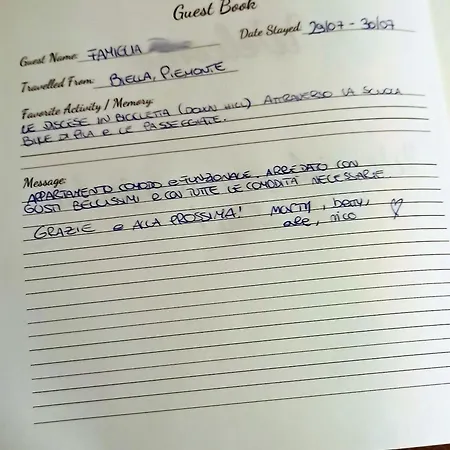 Guest Book
Guest Name: FAMIGLIA
Date Stayed 29/07 - 30/07
Travelled From: BIELLA, PIEMONTE
Favorite Activity / Memory:
LE DISCESE IN BICICLETTA (DOWN HILL) ATTRAVERSO LA SCUOLA
BIKE DI E LE PASSEGGIATE.
Message:
APPARTAMENTO COMODO E FUNZIONALE, ARREDATO CON
GUSTI BELLISSIMI E CON TUTTE LE COMODITÀ NECESSARIE
GRAZIE E ALLA PROSSIMA! betty,
ale, nico